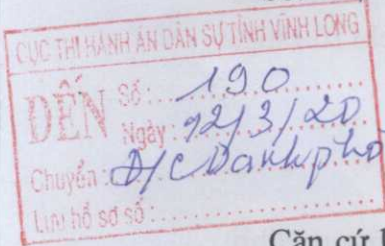 CỤC THI HÀNH ÁN DÂN SỰ TỈNH VĨNH LONG
ĐẾN
Số: 190
Ngày: 12/3/20
Chuyển: Đ/c
Lưu hồ sơ số:
Căn cứ